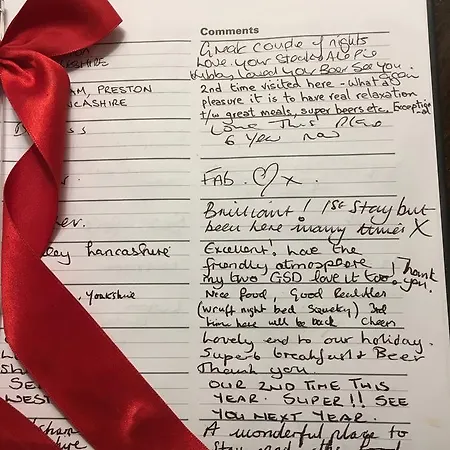 Comments
Great couple of nights
Love your Steak & Ale Pie
Hubby loved you Beer See you
Soon
SHIRE
2nd time visited here - what a
AM, PRESTON
pleasure it is to have real relaxation
NCASHIRE
t/w great meals, super beers etc. Exceptional
Love This Place
6 Year now
FAB. x
Brilliant! 1st Stay but
been here many times X
ley Lancashire
Excellent! Love the
friendly atmosphere
my two GSD love it too. Thank you!
Yorkshire
Nice food, Good
night bed Squeky) 3rd
time here will be back Cheers
Lovely end to our holiday.
Superb breakfast & Beer
Thank you
OUR 2ND TIME THIS
YEAR. SUPER!! SEE
YOU NEXT YEAR.
A wonderful place to
Stay and the food